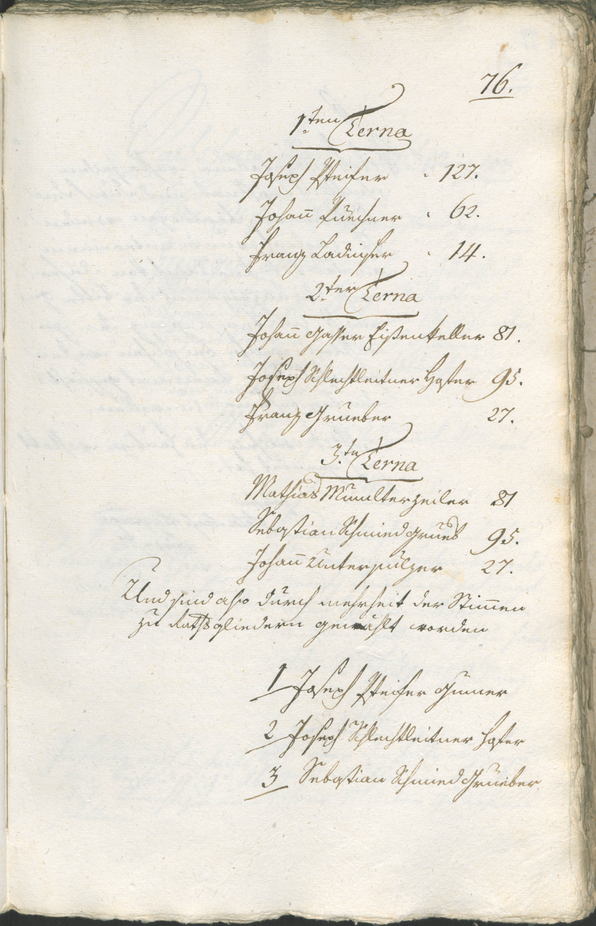 76.
1ten Terna
Joseph Pfeifer - 127.
Johann Kuechner - 62.
Franz Ladinser - 14.
2ter Terna
Johann Gasser Eisenkeller 81.
Joseph Schlechtleitner Hater 95.
Franz Grueber 27.
3ta Terna
Mathias Munterzeiler 81
Sebastian Schmied 95.
Johann Unterpulzer 27.
Und sind also durch mehrheit der Stimmen
zu Rathsgliedern gewählt worden
1 Joseph Pfeifer
2 Joseph Schlechtleitner Hater
3 Sebastian Schmied Grueber